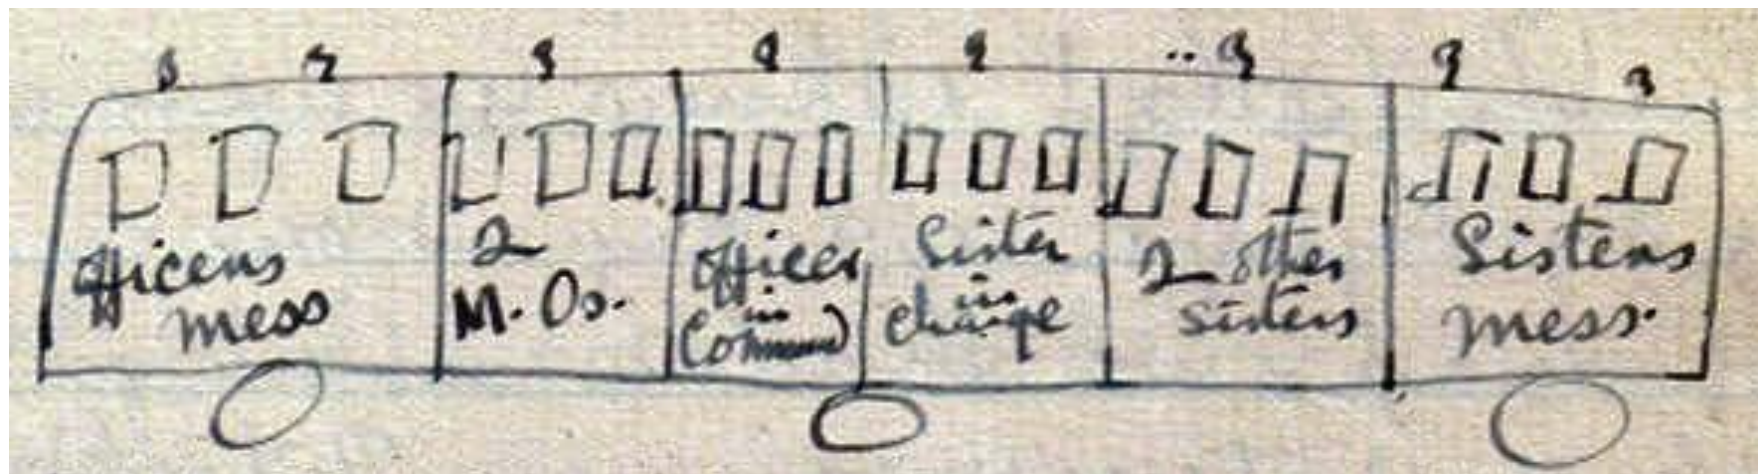 Officers
mess
2
M. Os.
Officer
in
Command
Sister
in
charge
2 other
sisters
Sisters
mess.